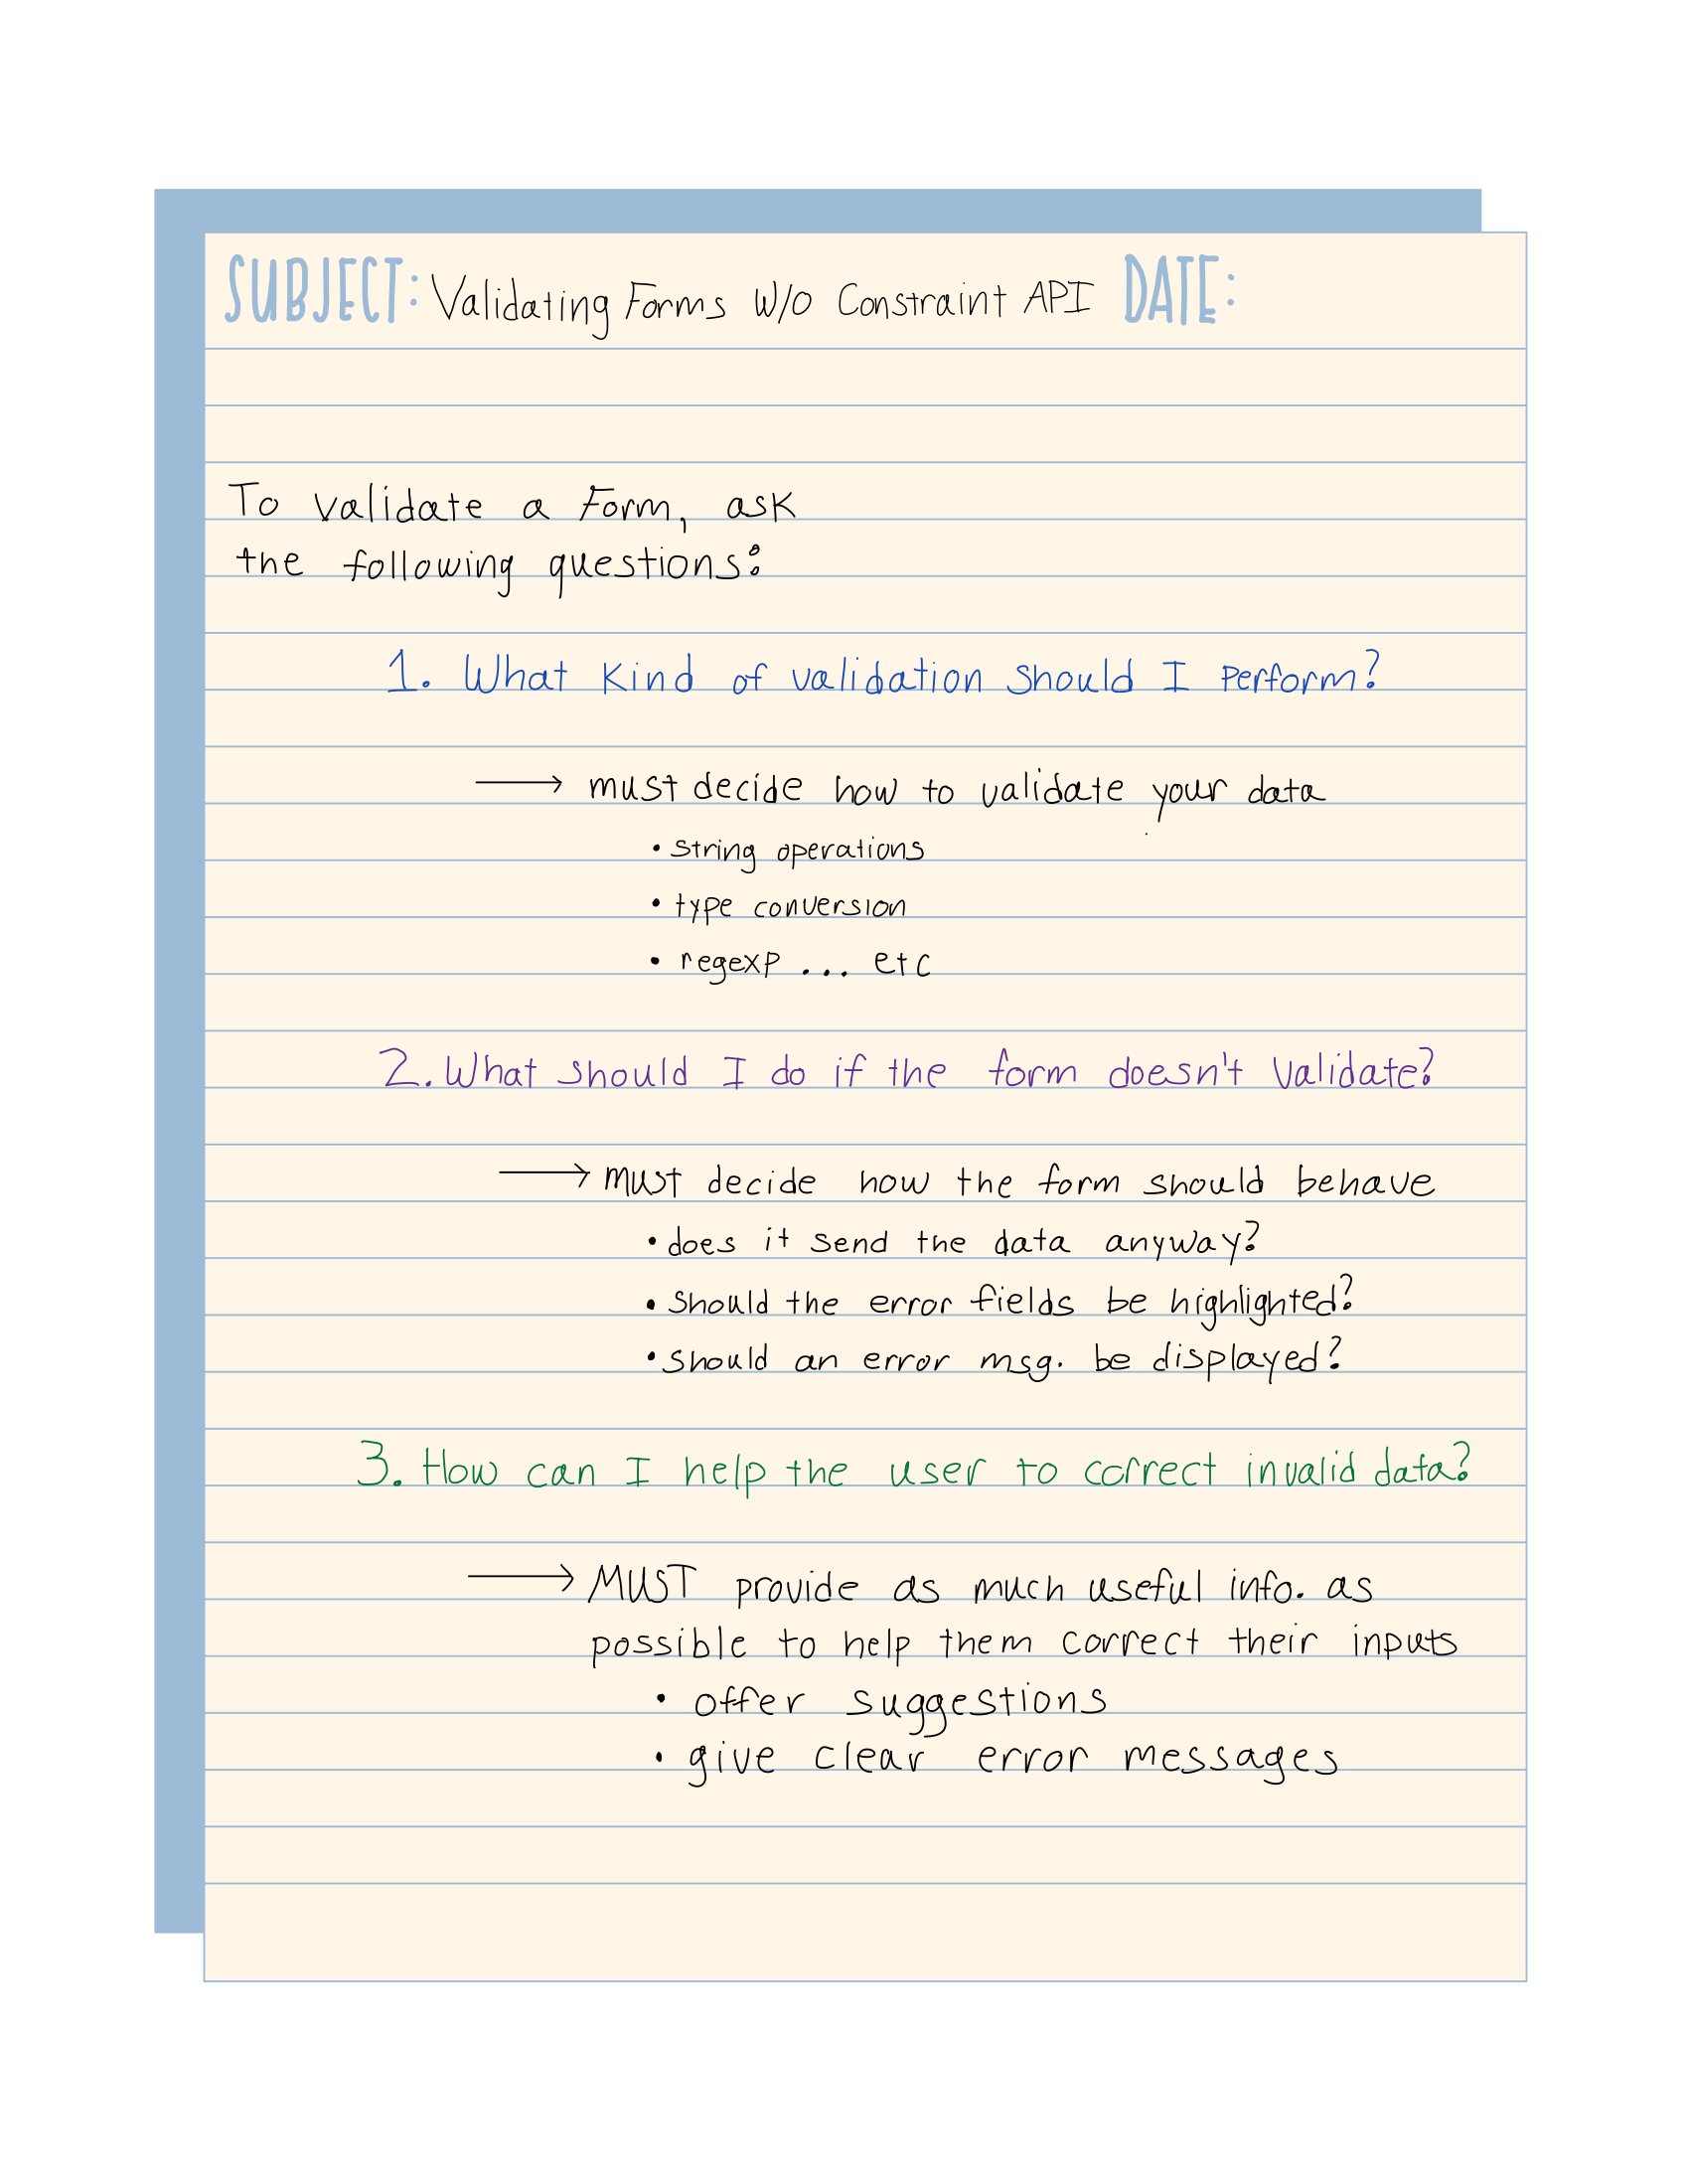 SUBJECT: Validating Forms W/O Constraint API DATE:
To validate a Form, ask
the following questions:
1. What kind of validation should I perform?
→ must decide how to validate your data
• string operations
• type conversion
• regexp ... etc
2. What should I do if the form doesn't validate?
→ must decide how the form should behave
• does it send the data anyway?
• should the error fields be highlighted?
• should an error msg. be displayed?
3. How can I help the user to correct invalid data?
→ MUST provide as much useful info. as
possible to help them correct their inputs
• offer suggestions
• give clear error messages